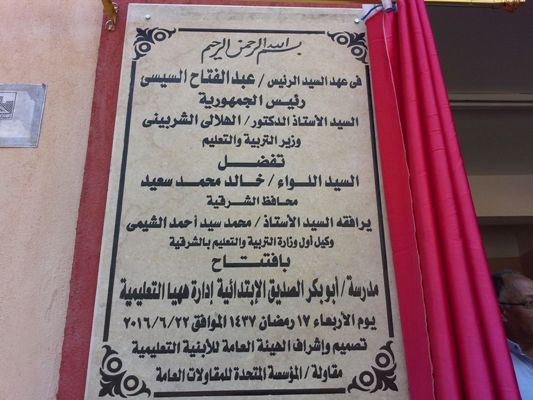 بسم الله الرحمن الرحيم
فى عهد السيد الرئيس / عبد الفتاح السيسى
رئيس الجمهورية
السيد الأستاذ الدكتور / الهلالى الشربينى
وزير التربية والتعليم
تفضل
السيد اللواء / خالد محمد سعيد
محافظ الشرقية
يرافقه السيد الأستاذ / محمد سيد أحمد الشيمى
وكيل أول وزارة التربية والتعليم بالشرقية
بافتتاح
مدرسة / أبو بكر الصديق الإبتدائية إدارة ههيا التعليمية
يوم الأربعاء ١٧ رمضان ١٤٣٧ الموافق ٢٠١٦/٦/٢٢
تصميم وإشراف الهيئة العامة للأبنية التعليمية
مقاولة / المؤسسة المتحدة للمقاولات العامة